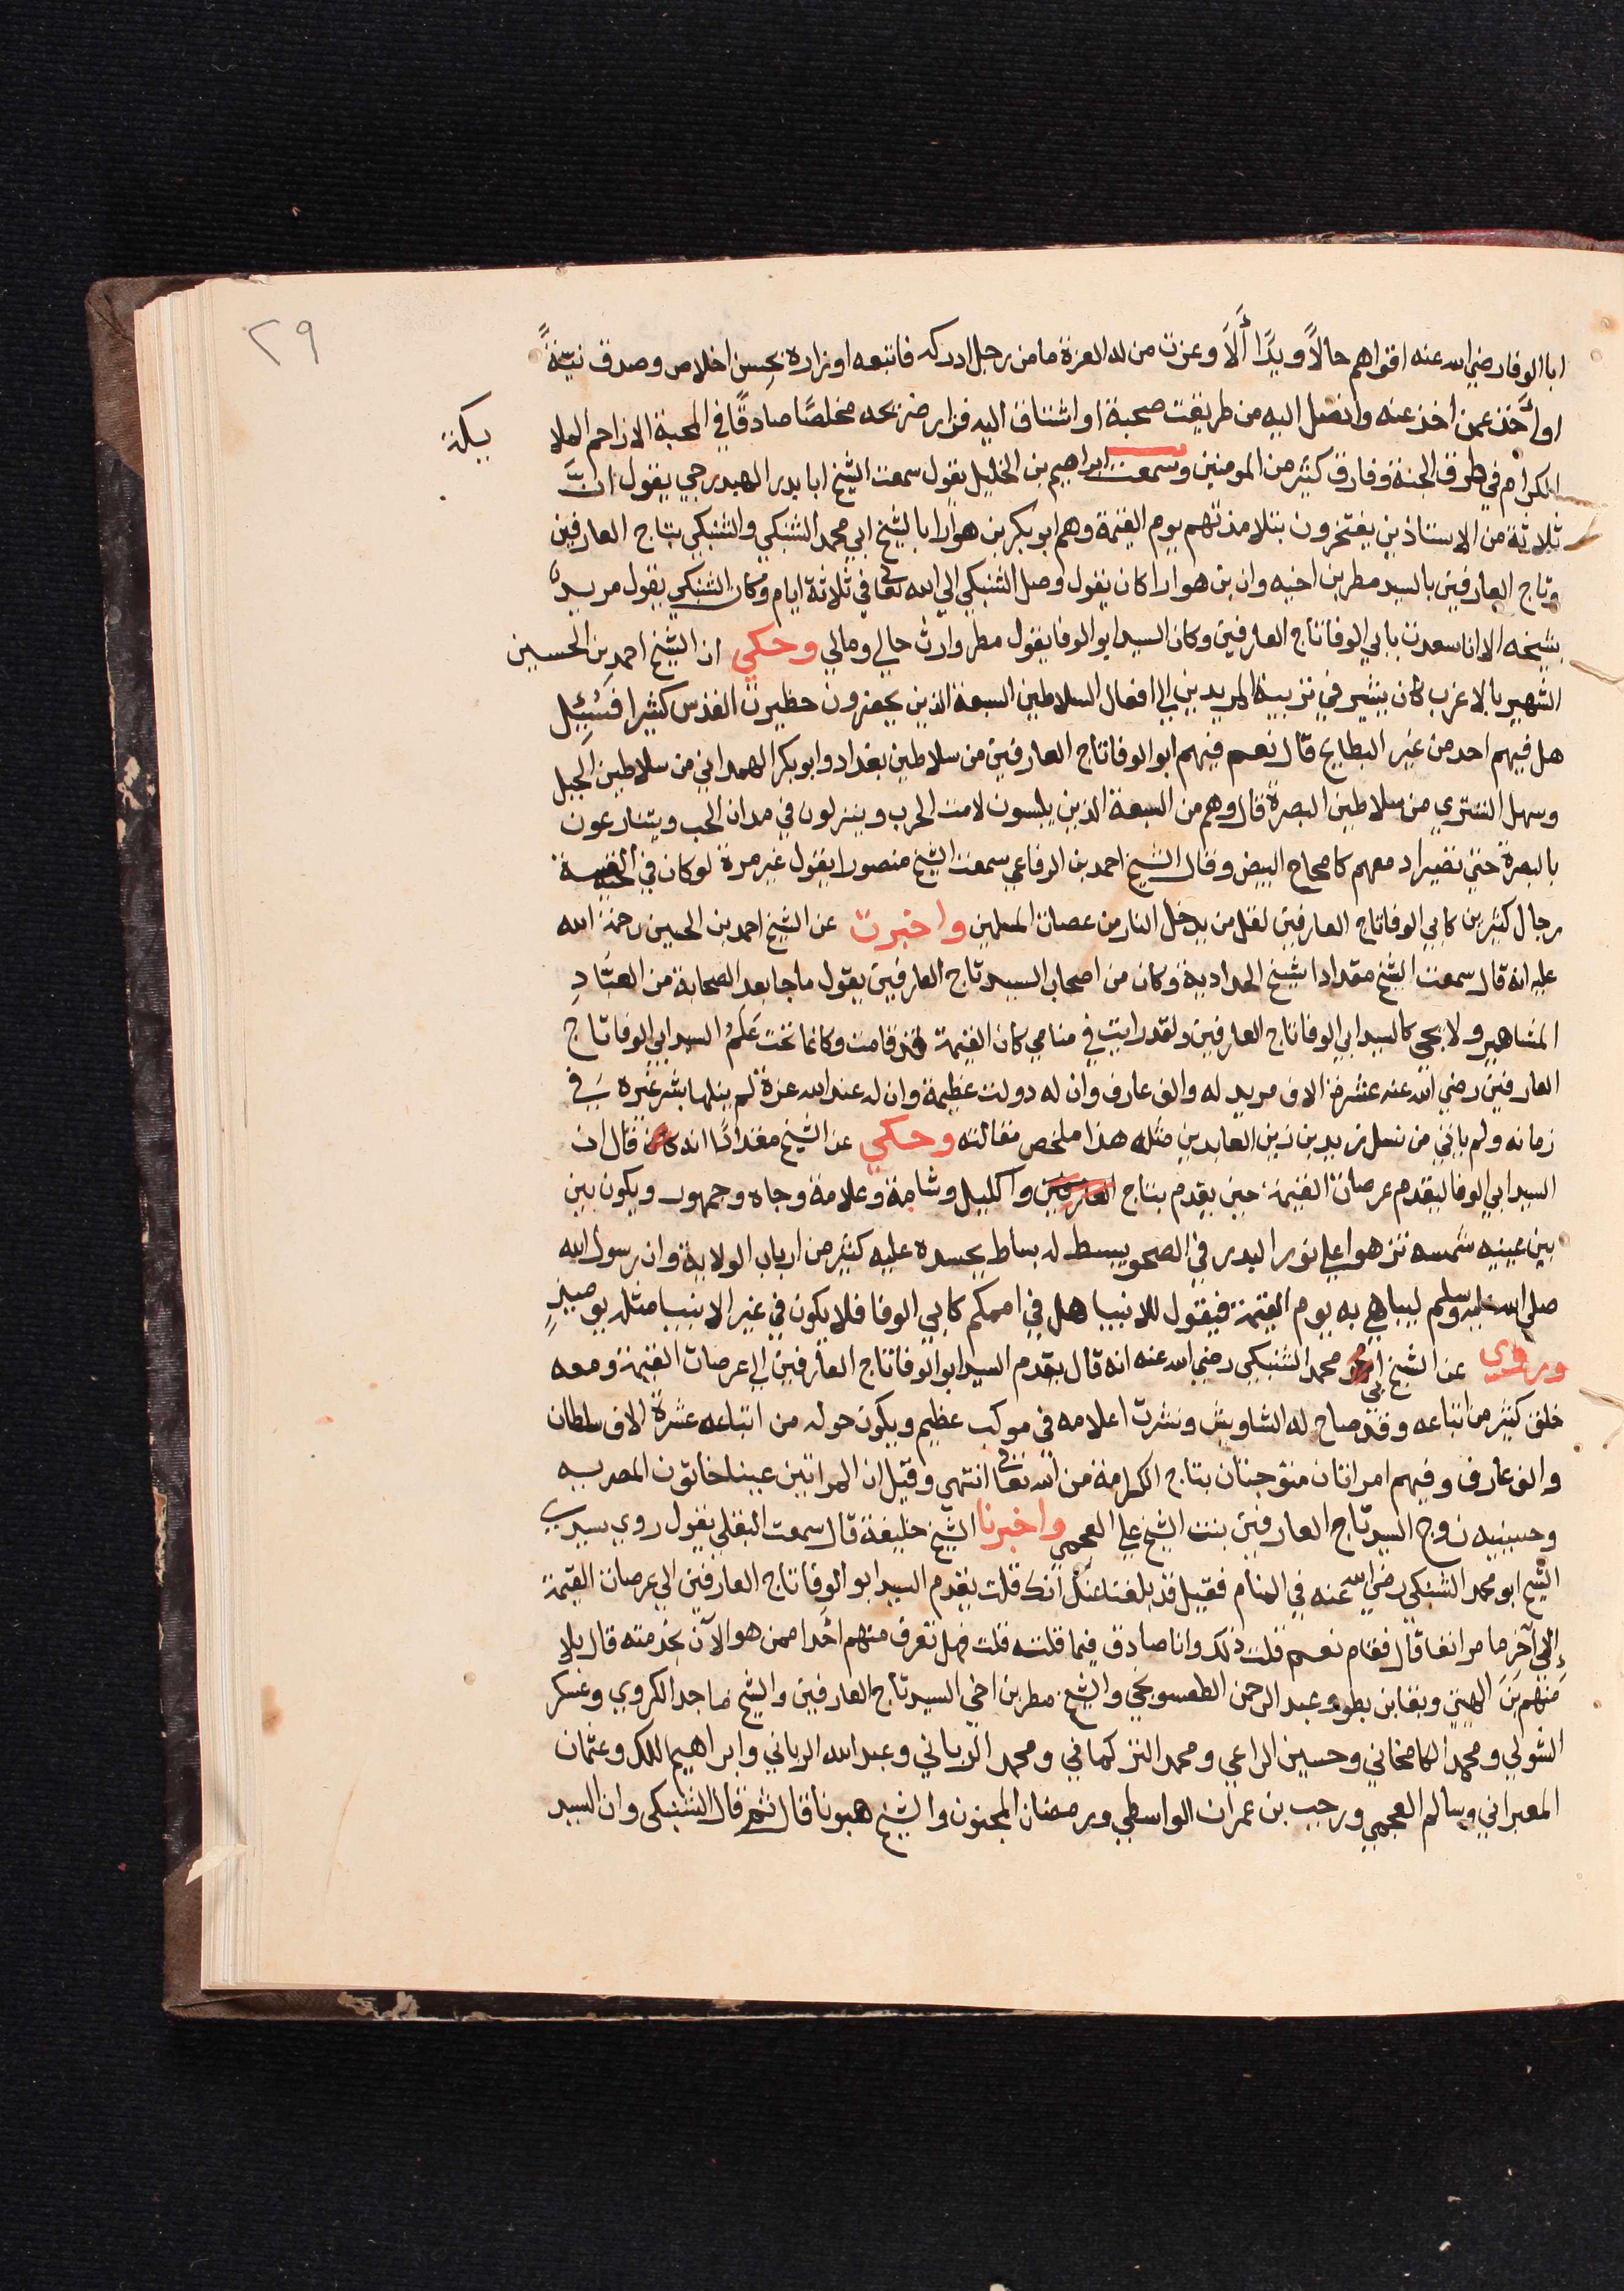 ٢٩
ابا الوفا رضي الله عنه اقواهم حالاً ويدًا ألَا وعزت من له العزة ما من رجل ادركه فاتبعه او زاره بحسن اخلاص وصدق نيّةً
او أخذ عمن اخذ عنه واتصل اليه من طريقت صحبة او اشتاق اليه فزار ضريحه مخلصًا صادقًا في المحبة الا زاحم الملا
يكة
الكرام في طرق الجنة وفارق كثير من المومنين وسمعت ابراهيم بن الخليل يقول سمعت الشيخ ابا بدر الهيدرجي يقول انّ
ثلاثة من الاستاذين يفتخرون بتلامذتهم يوم القيمة وهم ابو بكر بن هوارا بالشيخ ابي محمد الشنبكي والشنبكي بتاج العارفين
وتاج العارفين بالسيد مطر بن اخيه وان بن هوارا كان يقول وصل الشنبكي الي الله تعا في ثلاثة ايام وكان الشنبكي يقول مريد
بشيخه الا انا سعدت بابي الوفا تاج العارفين وكان السيد ابو الوفا يقول مطر وارث حالي ومالي وحكي ان الشيخ احمد بن الحسين
الشهير بالاعزب كان يشير في تربية المريدين الي افعال السلاطين السبعة الذين يحضرون حظيرت القدس كثيرا فسُئِل
هل فيهم احد من غير البطايح قال نعم فيهم ابو الوفا تاج العارفين من سلاطين بغداد وابو بكر الهمداني من سلاطين الجبل
وسهل التستري من سلاطين البصرة قال وهم من السبعة الذين يلبسون لامت الحرب وينزلون في مدان الحب ويتنازعون
بالبصرة حتي تضيراد معهم كامحاح البيض وقال الشيخ احمد بن الرفاعي سمعت الشيخ منصورا يقول غير مرة لو كان في
رجال كثير بن كابي الوفا تاج العارفين لقل من يدخل النار من عصات المسلمين واخبرت عن الشيخ احمد بن الحسين رحمة الله
عليه انه قال سمعت الشيخ مقدادا شيخ المدادية وكان من اصحاب السيد تاج العارفين يقول ما جا بعد الصحابة من العبّادِ
المشاهير ولا يجي كالسيد ابي الوفا تاج العارفين ولقد رايت في منامي كان القيمة قد قامت وكانما تحت عَلَمُ السيد ابي الوفا تاج
العارفين رضي الله عنه عشرة الاف مريد له والف عارف وان له دولت عظيمة وان له عند الله عزة لم ينلها بشر غيره في
زمانه ولم ياتي من نسل زيد بن زين العابدين مثله هذا ملخص مقالته وحكي عن الشيخ مقدادًا انه قال ان
السيد ابي الوفا ليقدم عرصات القيمة حين يقدم بتاج العارفين واكليل وشامة وعلامة وجاه وجمهور ويكون بين
بين عينيه شمسه تزهوا علي نور البدر في الصحو يبسط له بساط يحسده عليه كثير من ارباب الولاية وان رسول الله
صلي الله عليه وسلم ليباهي به يوم القيمة فيقول للانبيا هل في اممكم كابي الوفا فلا يكون في غير الانبيا مثله يوميذٍ
وروي عن الشيخ ابي محمد الشنبكي رضي الله عنه انه قال يقدم السيد ابو الوفا تاج العارفين الي عرصات القيمة ومعه
خلق كثير من اتباعه وقد صاح له الشاويش ونشرت اعلامه في موكب عظيم ويكون حوله من اتباعه عشرة الاف سلطان
والف عارف وفيهم امراتان متوجتان بتاج الكرامة من الله تعا انتهي وقيل ان المراتين عينا خاتون المصريه
وحسنيه زوج السيد تاج العارفين بنت الشيخ علي العجمي واخبرنا الشيخ خليفة قال سمعت البقلي يقول روي سيدي
الشيخ ابو محمد الشنبكي رضي الله عنه في المنام فقيل قد بلغنا عنك انك قلت يقدم السيد ابو الوفا تاج العارفين الي عرصات القيمة
إلي آخر ما مر انفا قال فقام نعم قلت ذلك وانا صادق فيما قلته قلت فهل تعرف منهم أحدا ممن هو الآن بخدمته قال بلا
منهم بن الهيتي وبقا بن بطو وعبد الرحمن الطفسونجي والشيخ مطر بن اخي السيد تاج العارفين والشيخ ماجد الكروي وعسكر
الشولي ومحمد الكامخاني وحسين الراعي ومحمد التركماني ومحمد الزباني وعبد الله الرباني وابراهيم الملك وعثمان
المعبراني وسالم العجمي ورجب بن عمران الواسطي ورمضان المجنون والشيخ هبونا قال ثم قال الشنبكي وان السيد